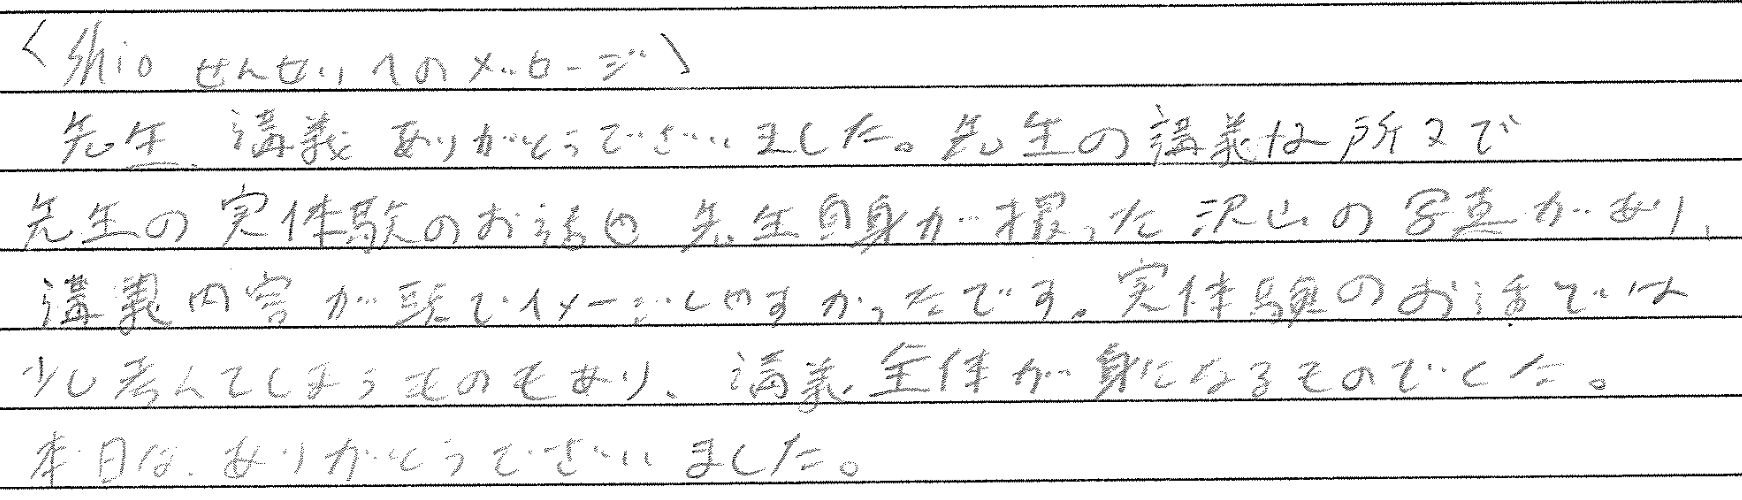 〈Shio せんせいへのメッセージ〉
先生、講義ありがとうございました。先生の講義は所々で
先生の実体験のお話や先生自身が撮った沢山の写真があり、
講義内容が頭でイメージしやすかったです。実体験のお話では
少し考えてしまうものもあり、講義全体が身になるものでした。
本日は、ありがとうございました。